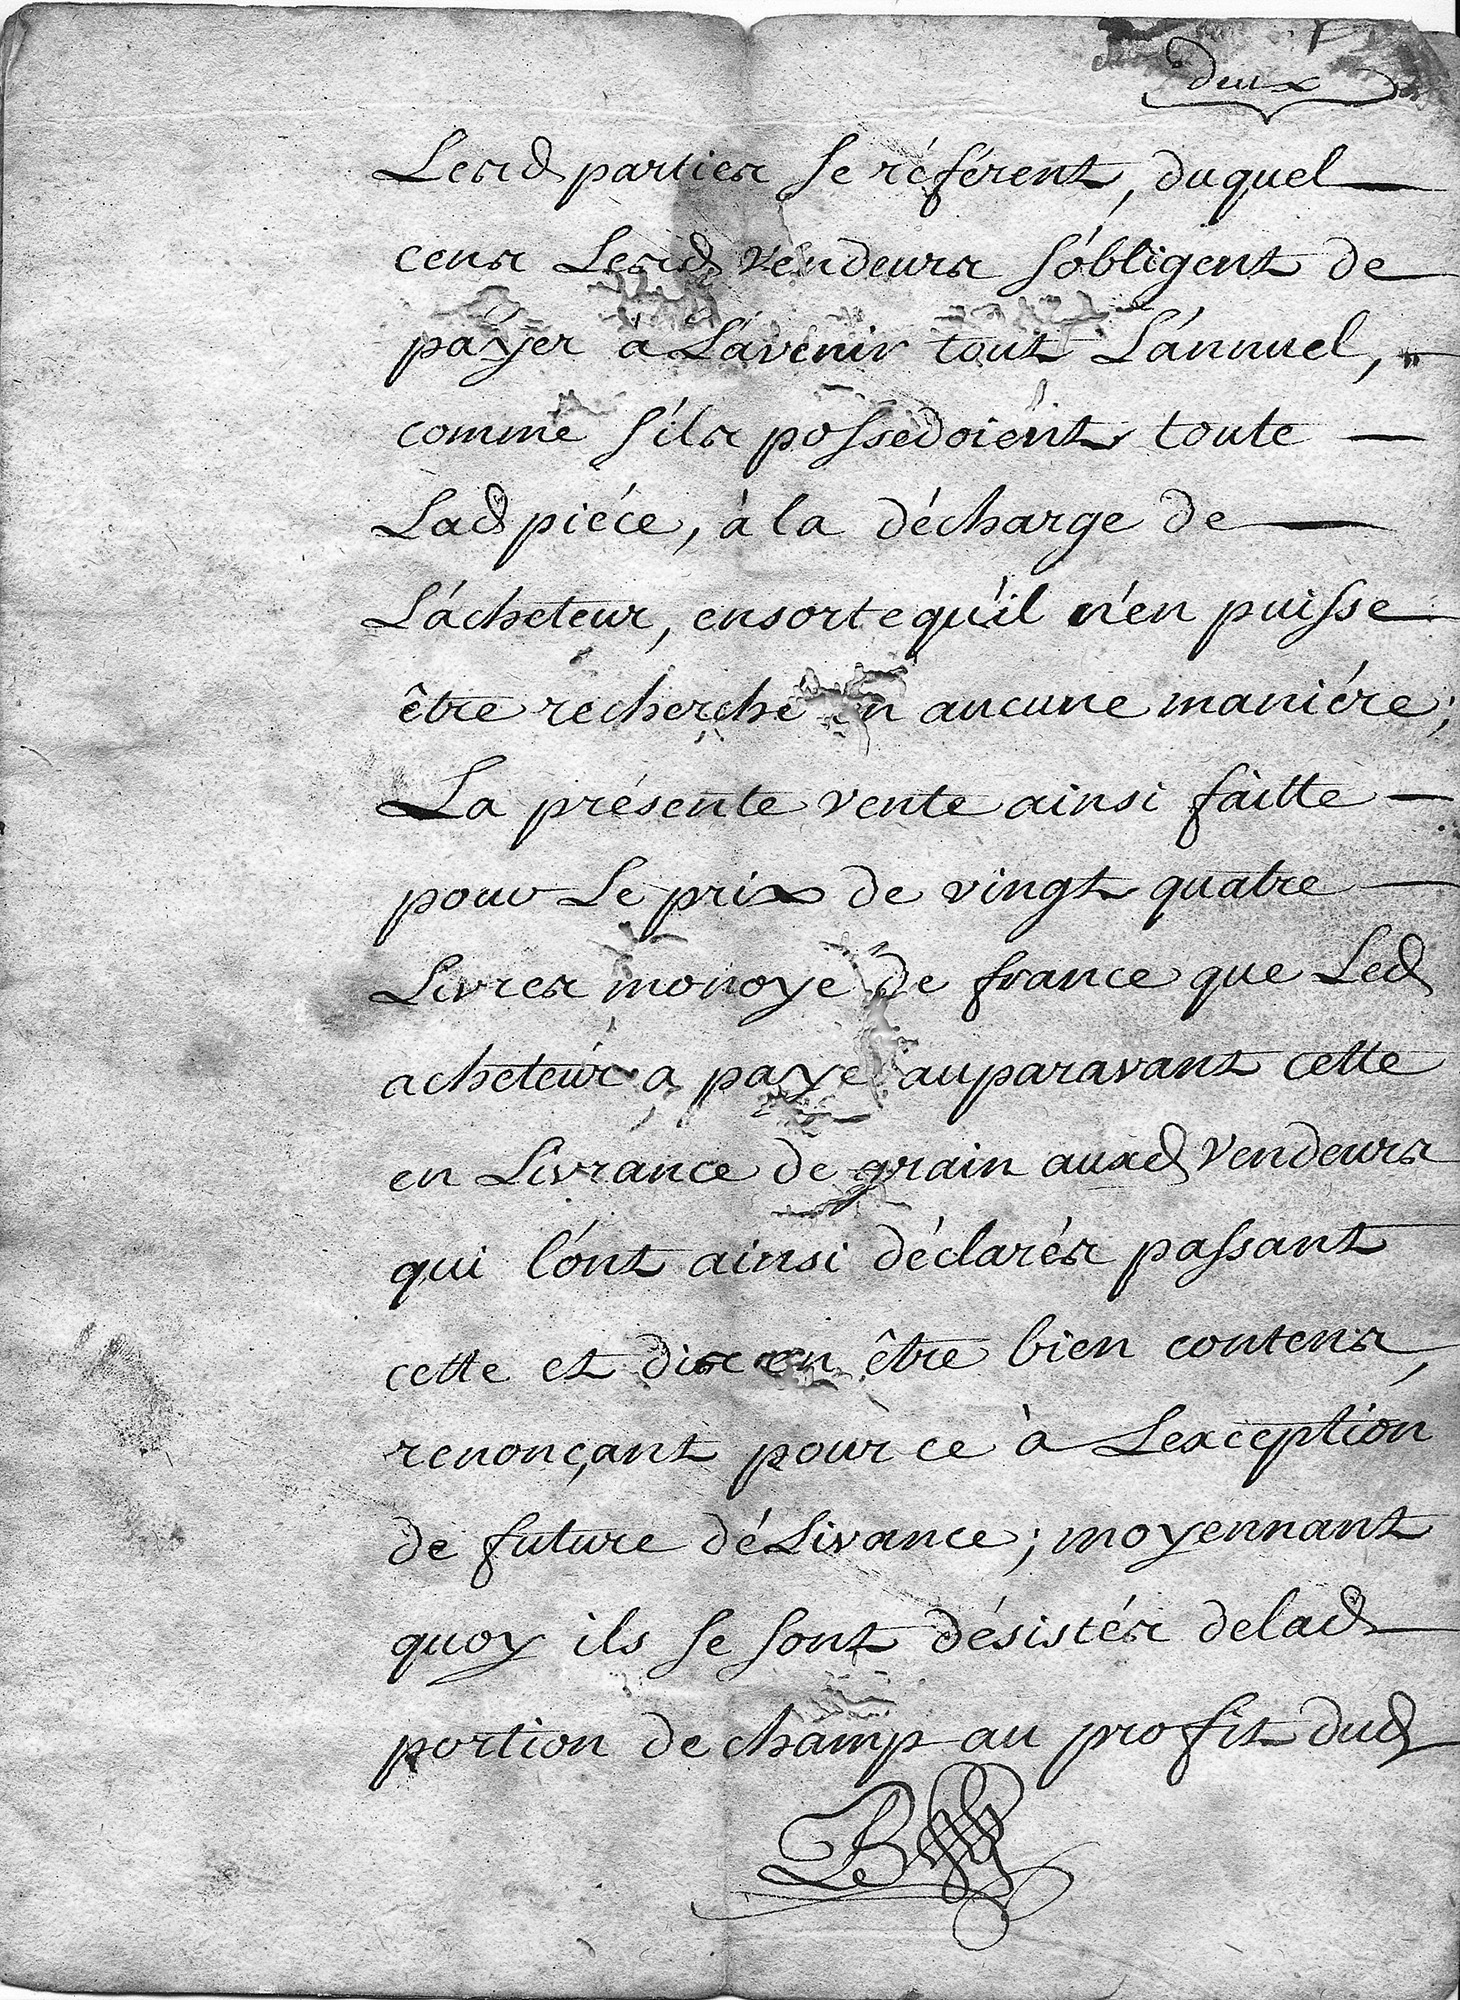 deux
Lesd parties se réferent, duquel
cens Lesd vendeurs s'obligent de
payer à L'avenir tout L'annuel,
comme s'ils possedoient toute
Lad piéce, à la décharge de
L'acheteur, ensorte qu'il n'en puisse
être recherché en aucune maniére;
La présente vente ainsi faitte
pour Le prix de vingt quatre
Livres monoye de france que Led
acheteur a payé auparavant cette
en Livrance de grain auxd vendeurs
qui l'ont ainsi déclarés passant
cette et dis en être bien contens,
renonçant pour ce à Lexception
de future déLivance; moyennant
quoy ils se sont désistés delad
portion de champ au profit dud